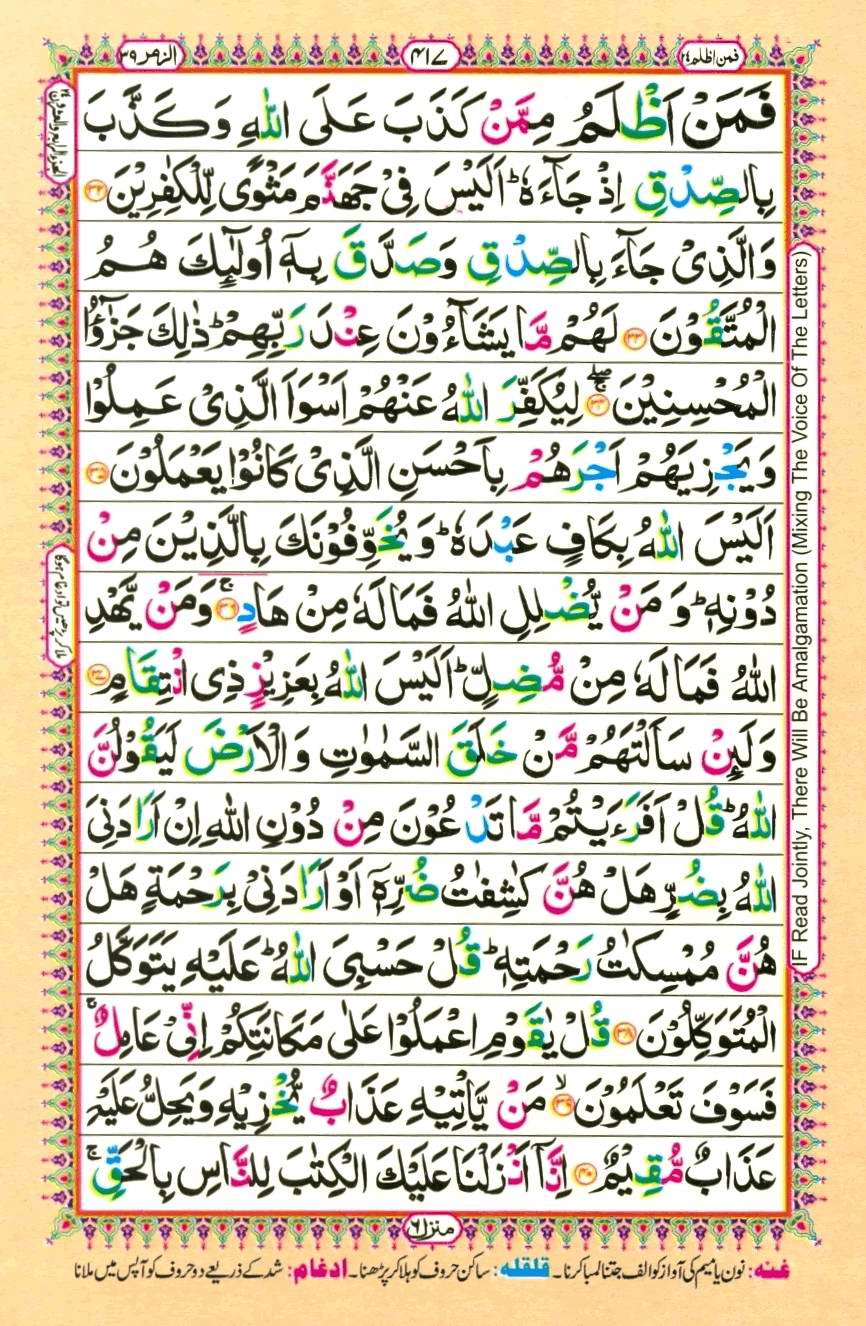 فمن اظلم ٢٤
٤١٧
الزمر ٣٩
الجزء الرابع والعشرون ٢٤
فَمَنْ اَظْلَمُ مِمَّنْ كَذَبَ عَلَى اللّٰهِ وَكَذَّبَ
بِالصِّدْقِ اِذْ جَآءَهٗ ؕ اَلَيْسَ فِيْ جَهَنَّمَ مَثْوًى لِّلْكٰفِرِيْنَ ٣٢
وَالَّذِيْ جَآءَ بِالصِّدْقِ وَصَدَّقَ بِهٖۤ اُولٰٓئِكَ هُمُ
الْمُتَّقُوْنَ ٣٣ لَهُمْ مَّا يَشَآءُوْنَ عِنْدَ رَبِّهِمْ ؕ ذٰلِكَ جَزٰٓؤُا
الْمُحْسِنِيْنَ ٣٤ لِيُكَفِّرَ اللّٰهُ عَنْهُمْ اَسْوَاَ الَّذِيْ عَمِلُوْا
وَيَجْزِيَهُمْ اَجْرَهُمْ بِاَحْسَنِ الَّذِيْ كَانُوْا يَعْمَلُوْنَ ٣٥
اَلَيْسَ اللّٰهُ بِكَافٍ عَبْدَهٗ ؕ وَيُخَوِّفُوْنَكَ بِالَّذِيْنَ مِنْ
دُوْنِهٖ ؕ وَمَنْ يُّضْلِلِ اللّٰهُ فَمَا لَهٗ مِنْ هَادٍ ٣٦ ۚ وَمَنْ يَّهْدِ
اللّٰهُ فَمَا لَهٗ مِنْ مُّضِلٍّ ؕ اَلَيْسَ اللّٰهُ بِعَزِيْزٍ ذِي انْتِقَامٍ ٣٧
وَلَئِنْ سَاَلْتَهُمْ مَّنْ خَلَقَ السَّمٰوٰتِ وَالْاَرْضَ لَيَقُوْلُنَّ
اللّٰهُ ؕ قُلْ اَفَرَءَيْتُمْ مَّا تَدْعُوْنَ مِنْ دُوْنِ اللّٰهِ اِنْ اَرَادَنِيَ
اللّٰهُ بِضُرٍّ هَلْ هُنَّ كٰشِفٰتُ ضُرِّهٖۤ اَوْ اَرَادَنِيْ بِرَحْمَةٍ هَلْ
هُنَّ مُمْسِكٰتُ رَحْمَتِهٖ ؕ قُلْ حَسْبِيَ اللّٰهُ ؕ عَلَيْهِ يَتَوَكَّلُ
الْمُتَوَكِّلُوْنَ ٣٨ قُلْ يٰقَوْمِ اعْمَلُوْا عَلٰى مَكَانَتِكُمْ اِنِّيْ عَامِلٌ ۚ
فَسَوْفَ تَعْلَمُوْنَ ٣٩ ۙ مَنْ يَّاْتِيْهِ عَذَابٌ يُّخْزِيْهِ وَيَحِلُّ عَلَيْهِ
عَذَابٌ مُّقِيْمٌ ٤٠ اِنَّاۤ اَنْزَلْنَا عَلَيْكَ الْكِتٰبَ لِلنَّاسِ بِالْحَقِّ ۚ
IF Read Jointly, There Will Be Amalgamation (Mixing The Voice Of The Letters)
ملا کر پڑھیں تو ادغام ہوگا
منزل ٦
غنہ: نون یا میم کی آواز کو الف جتنا لمبا کرنا۔ قلقلہ: ساکن حروف کو ہلا کر پڑھنا۔ ادغام: شد کے ذریعے دو حروف کو آپس میں ملانا